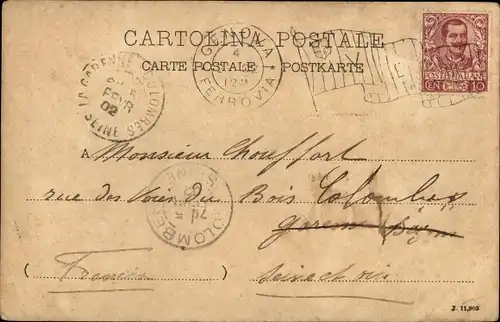 CARTOLINA POSTALE
CARTE POSTALE POSTKARTE
GENOVA
4
12 S
FERROVIA
POSTE ITALIANE
CENT. 10
LA GARENNE-COLOMBES
FEVR
02
SEINE
A Monsieur Chouffort
rue des Voies du Bois Colombes
COLOMBES
SEINE
(France)
Seine et Oise
J. 11,903